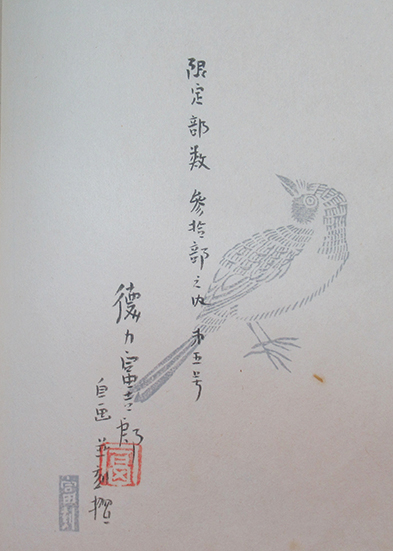 限定部数 参拾部之内 第五号
徳力富吉郎
自画並刻摺
富